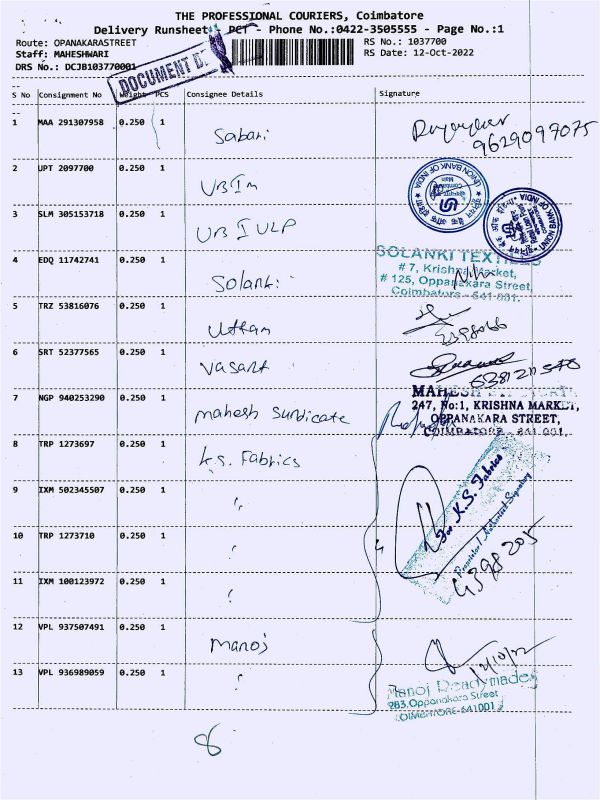 THE PROFESSIONAL COURIERS, Coimbatore
Delivery Runsheet - PCT - Phone No.:0422-3505555 - Page No.:1
Route: OPANAKARASTREET
RS No.: 1037700
Staff: MAHESHWARI
RS Date: 12-Oct-2022
DRS No.: DCJB103770001
DOCUMENT D
S No Consignment No Weight PCS Consignee Details Signature
1 MAA 291307958 0.250 1 Sabari
9629097075
2 UPT 2097700 0.250 1 UBIm
UNION BANK OF INDIA
3 SLM 305153718 0.250 1 UBI ULP
UNION BANK OF INDIA
4 EDQ 11742741 0.250 1 Solanki
SOLANKI TEXTILES
# 7, Krishna Market,
# 125, Oppanakara Street,
Coimbatore - 641 001.
5 TRZ 53816076 0.250 1 Uttam
6 SRT 52377565 0.250 1 Vasant
7 NGP 940253290 0.250 1 mahesh Sundicate
MAHESH
247, No:1, KRISHNA MARKET,
OPPANAKARA STREET,
COIMBATORE - 641 001.
8 TRP 1273697 0.250 1 k.s. Fabrics
For K.S. Fabrics
Proprietor / Authorised Signatory
9 IXM 502345507 0.250 1 "
10 TRP 1273710 0.250 1 "
4
4398205
11 IXM 100123972 0.250 1 "
12 VPL 937507491 0.250 1 manoj
12/10/22
13 VPL 936989059 0.250 1 "
Manoj Readymades
283, Oppanakara Street
COIMBATORE-641001
8